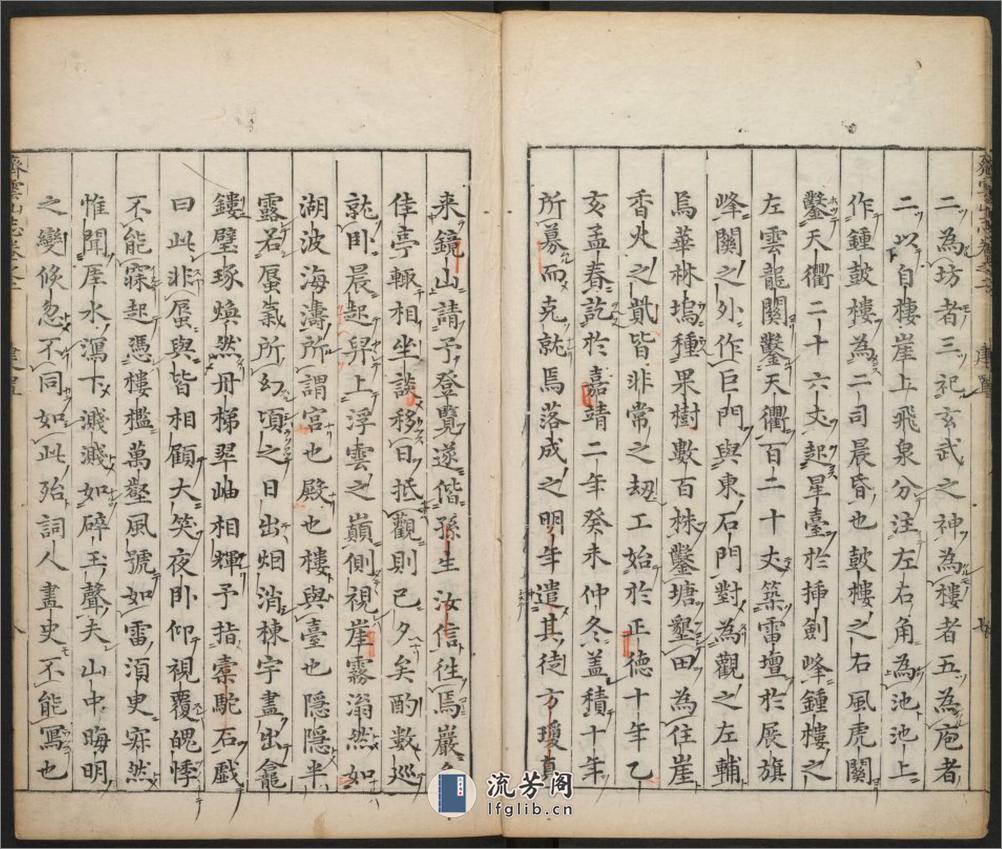 二為坊者三祀玄武之神為樓者五為庖者
二以自樓崖上飛泉分注左右角為池池上
作鍾鼓樓為二司晨昏也鼓樓之右風虎關
鑿天衢二十六丈起星臺於揷劍峰鍾樓之
左雲龍關鑿天衢百二十丈築雷壇於展旗
峰關之外作巨門與東石門對為觀之左輔
烏華林塢種果樹數百株鑿塘墾田為住崖
香火之貲皆非常之刧工始於正德十年乙
亥孟春訖於嘉靖二年癸未仲冬盖積十年
所募而克就焉落成之明年遣其徒方瓊真
来鏡山請予登覽遂偕孫生汝信徃焉巖
佳亭輙相坐談移日抵觀則已夕矣酌数巡
就卧晨起舁上浮雲之巔側視崖霧滃然如
湖波海濤所謂宮也殿也樓與臺也隱隱半
露若蜃氣所幻頃之日出烟消棟宇盡出龕
鏤璧琢煥然丹梯翠岫相輝予指槖駝石戲
曰此非蜃與皆相顧大笑夜卧仰視覆魄悸
不能寐起憑樓檻萬壑風號如雷湏臾寂然
惟聞厓水瀉下濺濺如碎玉聲夫山中晦明
之變倐忽不同如此殆詞人畫史不能寫也
齊雲山志卷之二
流芳阁
lfglib.cn